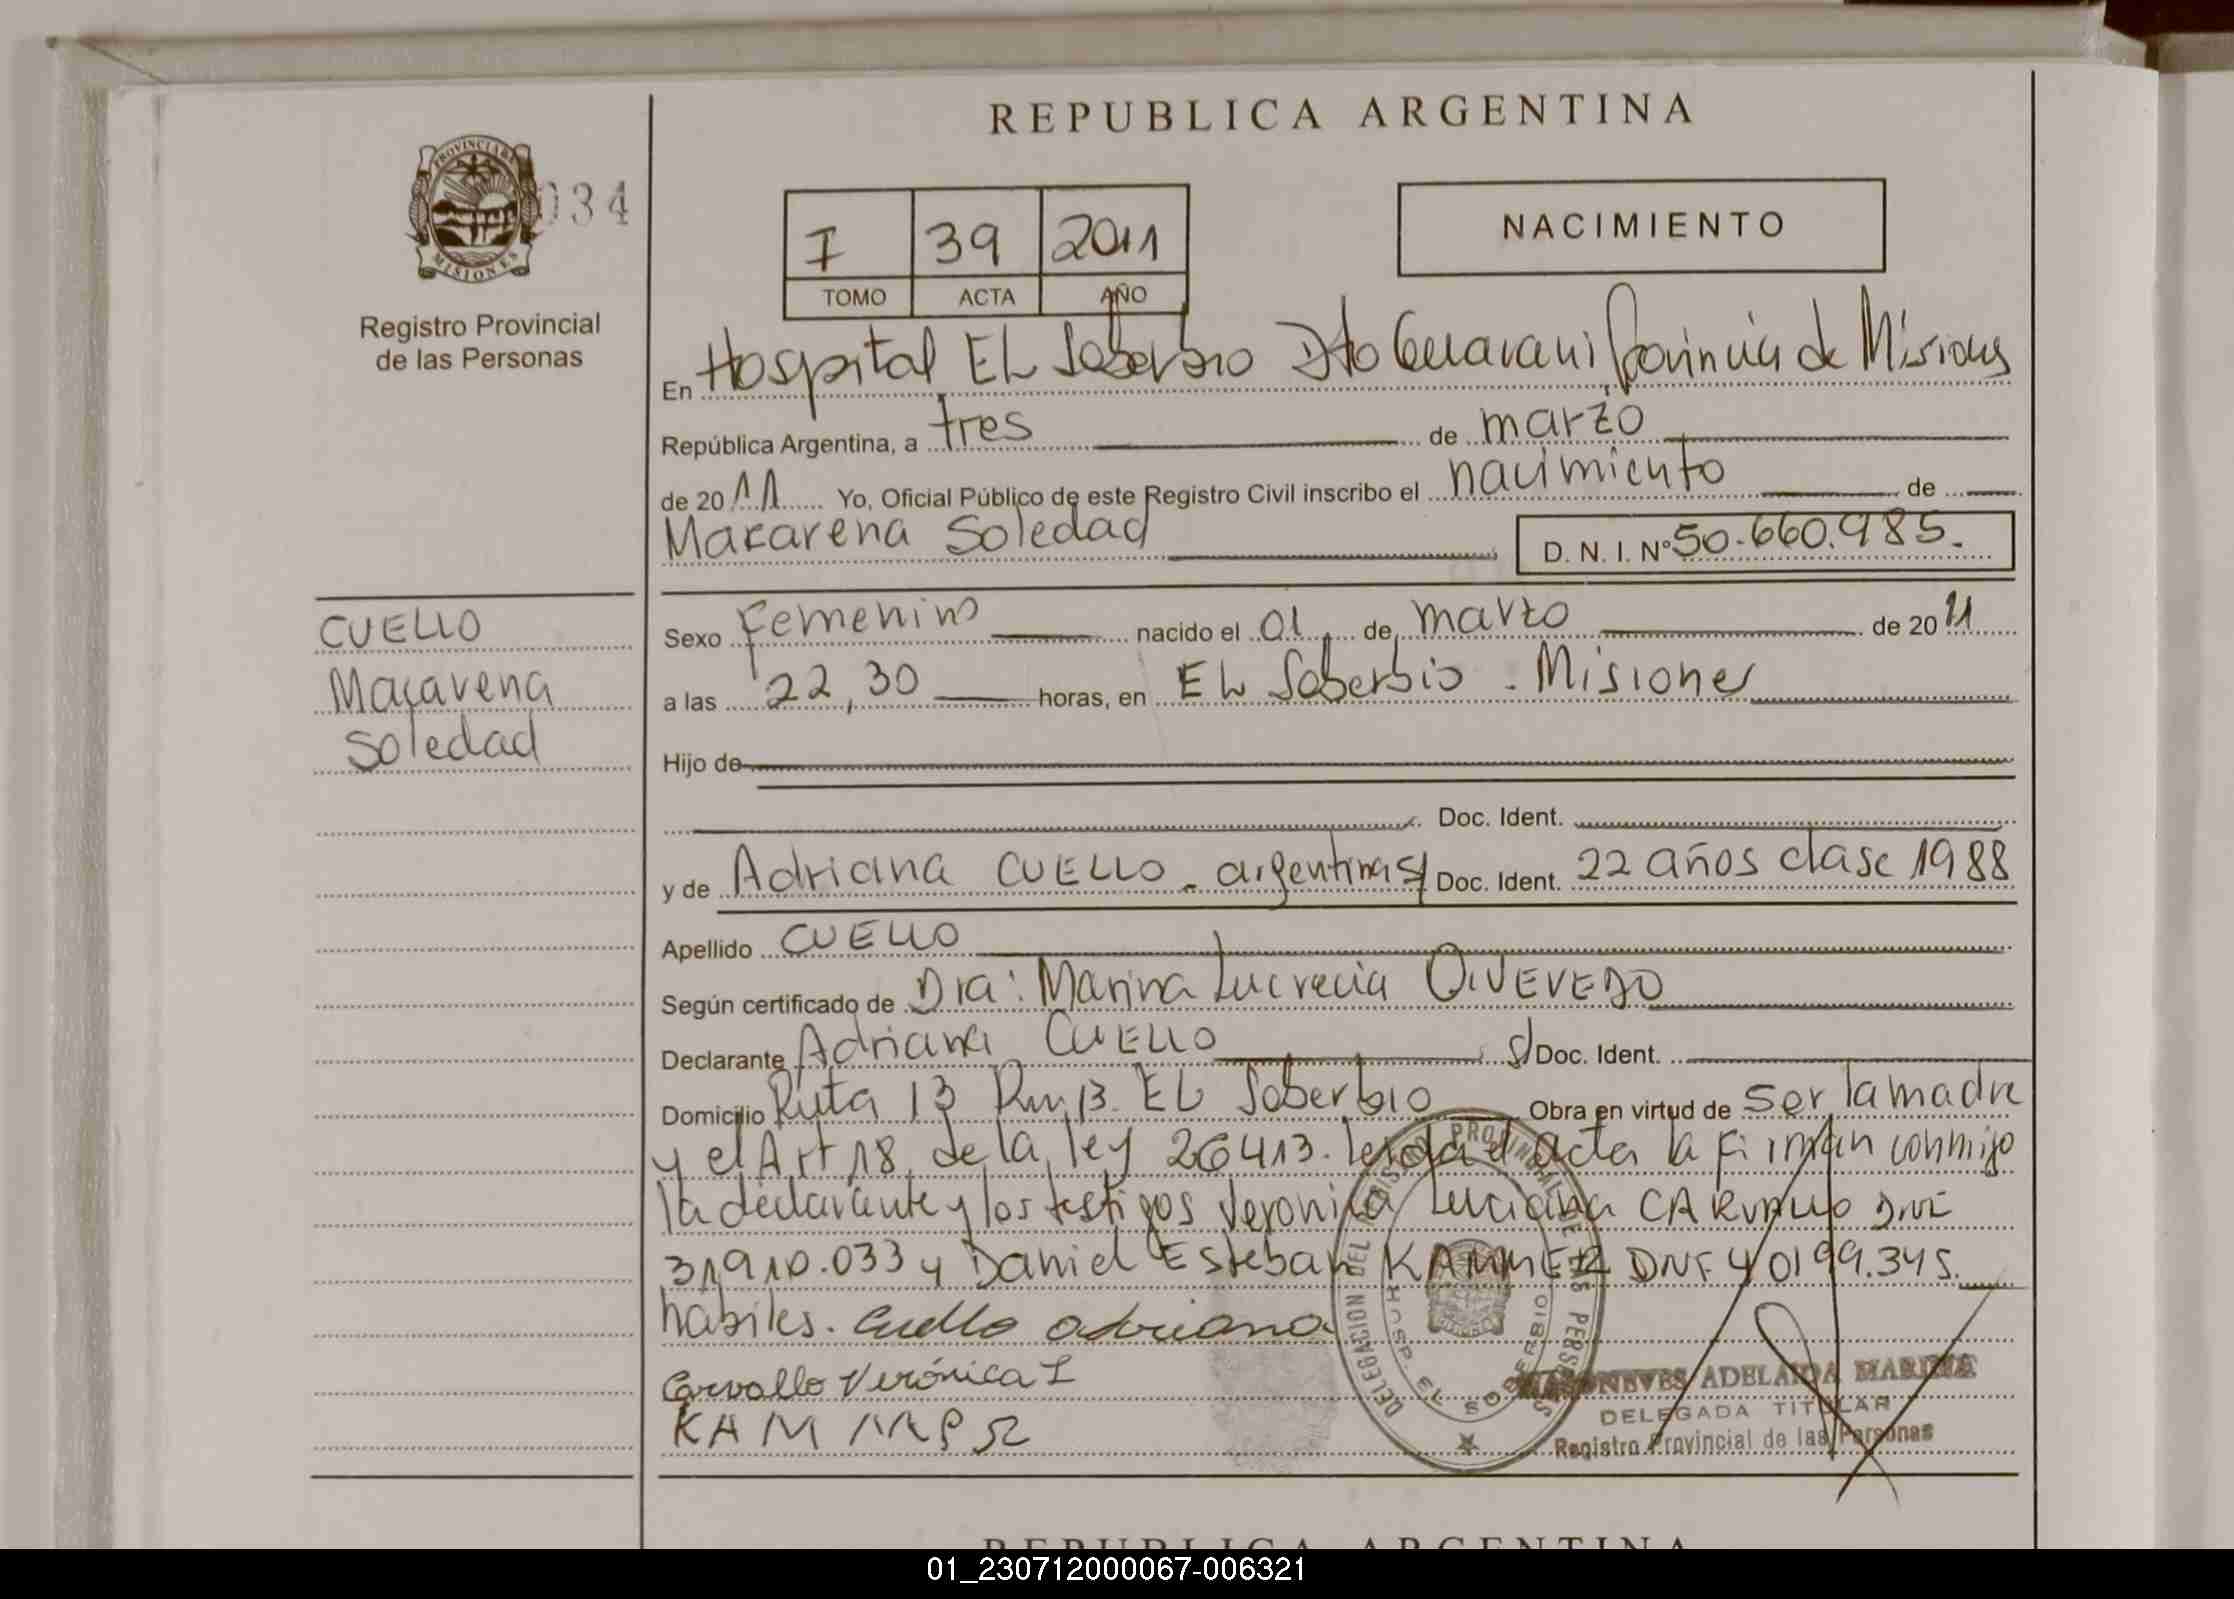 REPUBLICA ARGENTINA
PROVINCIA DE
MISIONES
034
Registro Provincial
de las Personas
I 39 2011
TOMO ACTA AÑO
NACIMIENTO
En Hospital EL Soberbio Dto Guarani Provincia de Misiones
República Argentina, a tres de marzo
de 2011 Yo, Oficial Público de este Registro Civil inscribo el nacimiento de
Macarena Soledad
D. N. I. Nº 50.660.985.
CUELLO
Macarena
Soledad
Sexo Femenino nacido el 01 de marzo de 2011
a las 22,30 horas, en EL Soberbio - Misiones
Hijo de
Doc. Ident.
y de Adriana CUELLO - argentina s/ Doc. Ident. 22 años clase 1988
Apellido CUELLO
Según certificado de Dra: Marina Lucrecia
Declarante Adriana CUELLO s/ Doc. Ident.
Domicilio Ruta 13 Km 13. EL Soberbio Obra en virtud de ser la madre
y el Art 18 de la ley 26413. leida el acta la firman conmigo
la declarante y los testigos Veronica Luciana CARVALLO DNI
31910.033 y Daniel Esteban KAMMER DNI 40199.345.
habiles. Cuello adriana
Carvallo Verónica L
KAMMER
DELEGACION DEL REGISTRO PROVINCIAL DE LAS PERSONAS
HOSP. EL SOBERBIO
NEVES ADELAIDA MARINA
DELEGADA TITULAR
Registro Provincial de las Personas
REPUBLICA ARGENTINA
01_230712000067-006321